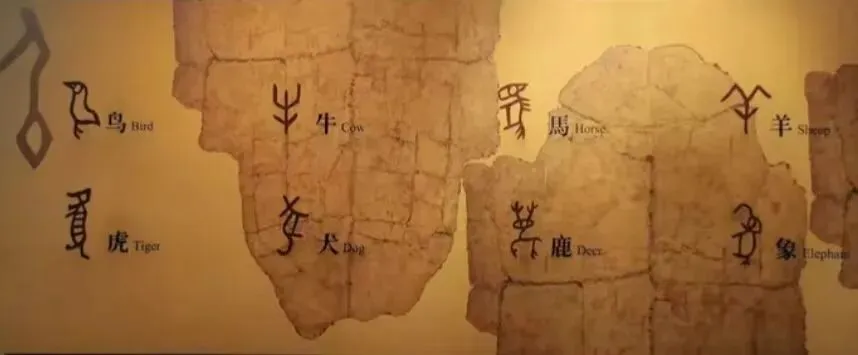 鸟 Bird 牛 Cow 馬 Horse 羊 Sheep
虎 Tiger 犬 Dog 鹿 Deer 象 Elephant